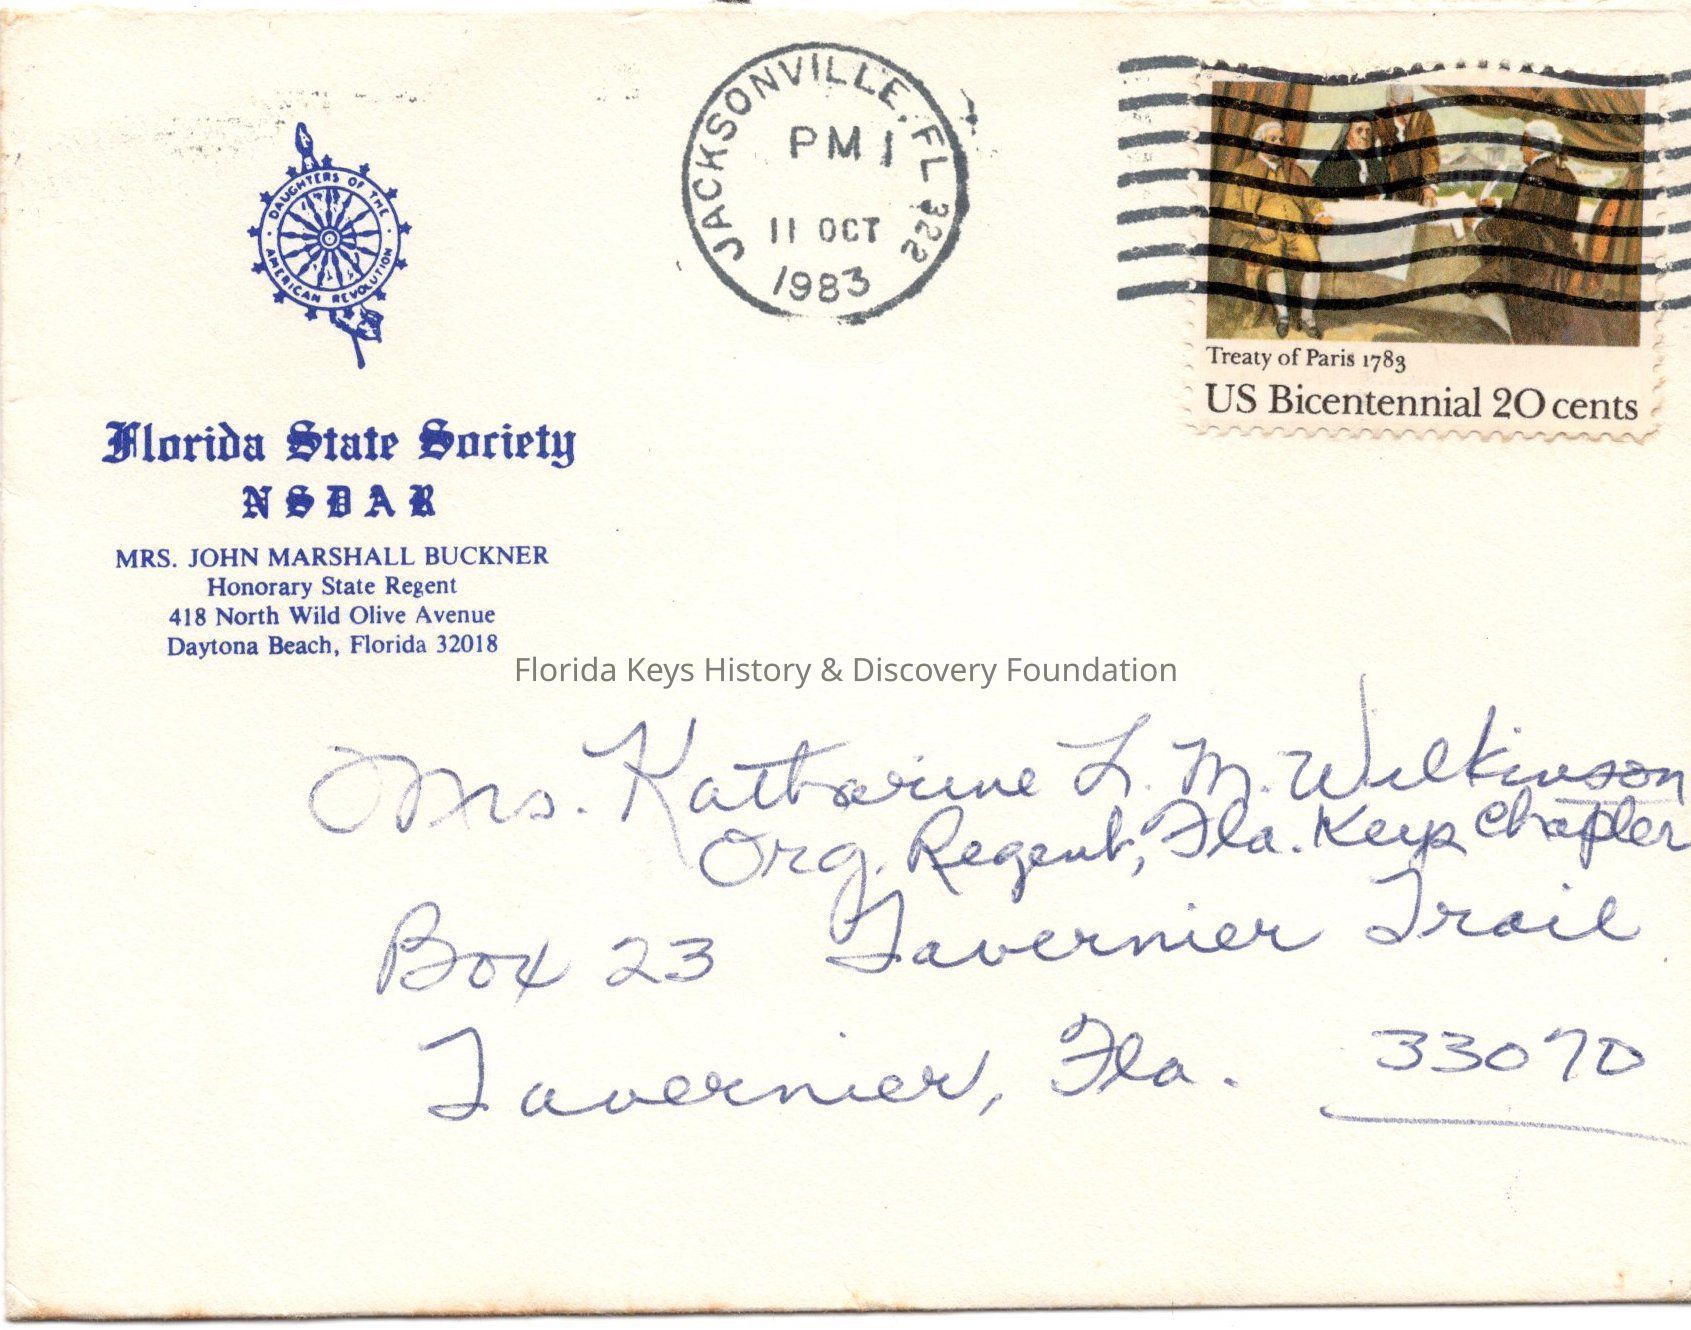 DAUGHTERS OF THE
AMERICAN REVOLUTION
Florida State Society
NSDAR
MRS. JOHN MARSHALL BUCKNER
Honorary State Regent
418 North Wild Olive Avenue
Daytona Beach, Florida 32018
JACKSONVILLE, FL 322
PM 1
11 OCT
1983
Treaty of Paris 1783
US Bicentennial 20 cents
Florida Keys History & Discovery Foundation
Mrs. Katharine L. M. Wilkinson
Org. Regent, Fla. Keys Chapter
Box 23 Tavernier Trail
Tavernier, Fla. 33070